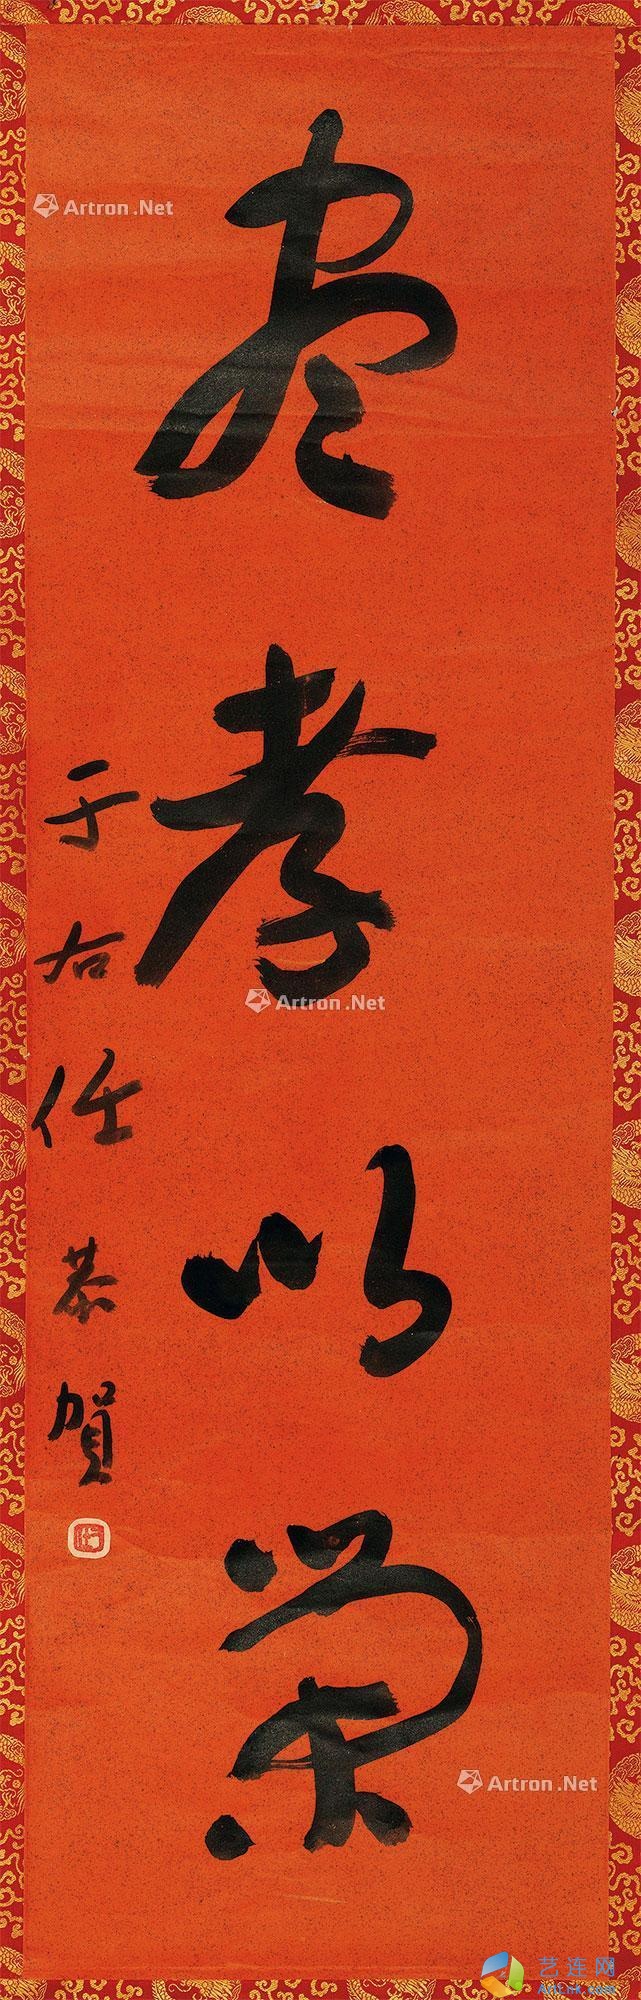 盡孝以榮
于右任恭賀
Artron.Net
Artron.Net
Artron.Net
艺连网